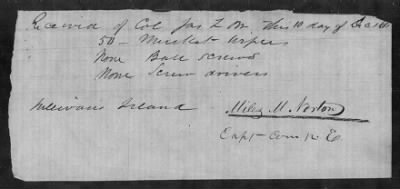 Received of Col Jas L Orr This 10 day of
50 - Musket wipers
None Ball Screws
None Screw drivers
Sullivans Island Miles M. Norton
Capt Com